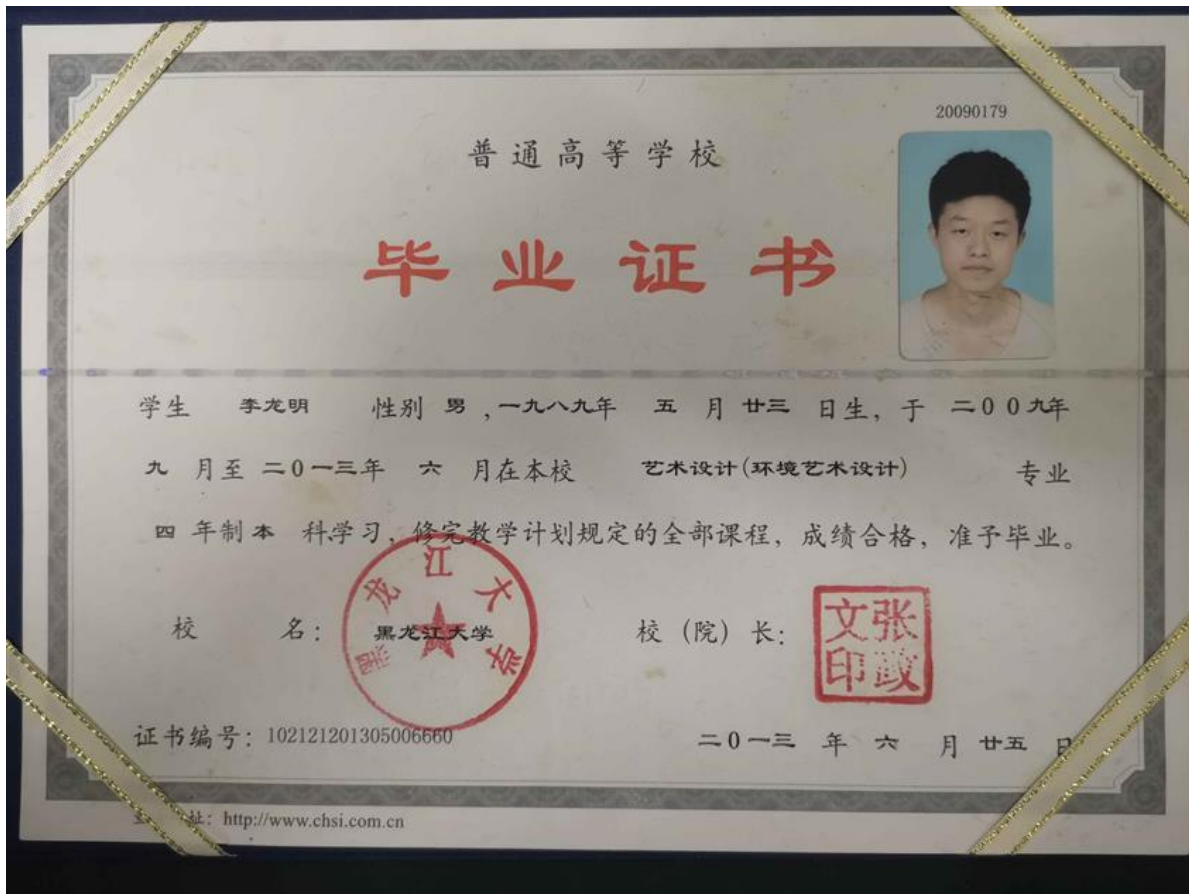 20090179
普通高等学校
毕业证书
学生 李龙明 性别 男 ,一九八九年 五 月 廿三 日生, 于 二00九年
九 月至 二0一三年 六 月在本校 艺术设计(环境艺术设计) 专业
四 年制 本 科学习, 修完教学计划规定的全部课程, 成绩合格, 准予毕业。
黑龙江大学
校 名: 黑龙江大学 校 (院) 长:
张政文印
证书编号: 102121201305006660 二0一三 年 六 月 廿五 日
址: http://www.chsi.com.cn